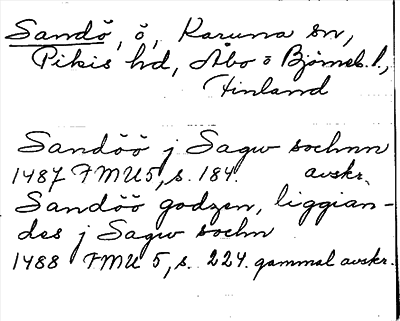 Sandö, ö, Karuna sn,
Pikis hd, Åbo o Björneb. l.,
Finland
Sandöö j Sagw sochnn
1487 FMU 5, s. 184. avskr.
Sandöö godzen, liggian-
des j Sagw sochn
1488 FMU 5, s. 224. gammal avskr.